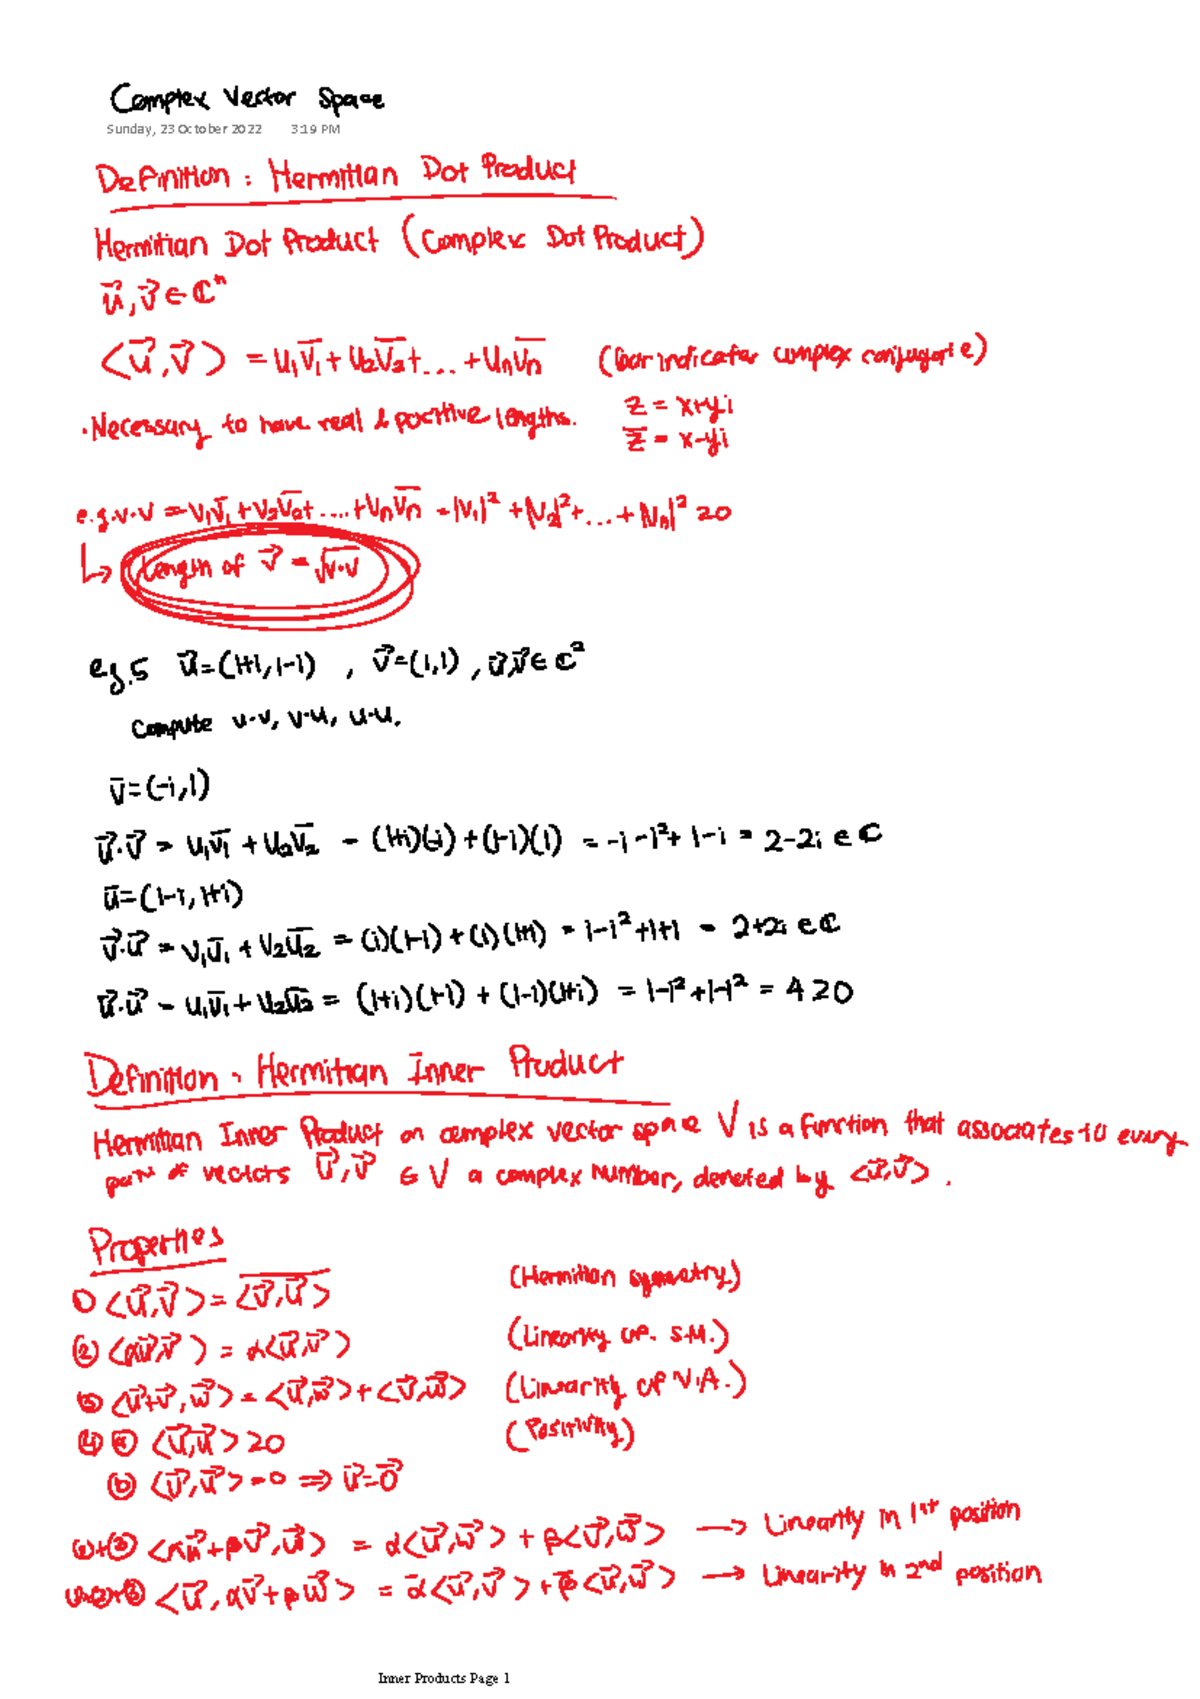 Complex Vector Space
Sunday, 23 October 2022 3:19 PM
Definition: Hermitian Dot Product
Hermitian Dot Product (Complex Dot Product)
u⃗, v⃗ ∈ ℂⁿ
⟨u⃗, v⃗⟩ = u₁v̄₁ + u₂v̄₂ + ... + uₙv̄ₙ (bar indicates complex conjugate)
· Necessary to have real & positive lengths. z = x+yi
z̄ = x-yi
e.g. v·v = v₁v̄₁ + v₂v̄₂ + .... + vₙv̄ₙ = |v₁|² + |v₂|² + ... + |vₙ|² ≥ 0
↳ Length of v⃗ = √v·v
eg.5 u⃗ = (1+i, 1-i) , v⃗ = (i,1) , u⃗,v⃗ ∈ ℂ²
Compute u·v, v·u, u·u.
v̄ = (-i, 1)
u⃗·v⃗ = u₁v̄₁ + u₂v̄₂ = (1+i)(-i) + (1-i)(1) = -i - i² + 1 - i = 2-2i ∈ ℂ
ū = (1-i, 1+i)
v⃗·u⃗ = v₁ū₁ + v₂ū₂ = (i)(1-i) + (1)(1+i) = i - i² + 1+i = 2+2i ∈ ℂ
u⃗·u⃗ = u₁ū₁ + u₂ū₂ = (1+i)(1-i) + (1-i)(1+i) = 1-i² + 1-i² = 4 ≥ 0
Definition: Hermitian Inner Product
Hermitian Inner Product on complex vector space V is a function that associates to every
pair of vectors u⃗, v⃗ ∈ V a complex number, denoted by ⟨u⃗,v⃗⟩ .
Properties
① ⟨u⃗, v⃗⟩ = \overline{⟨v⃗, u⃗⟩} (Hermitian symmetry)
② ⟨αu⃗, v⃗⟩ = α⟨u⃗, v⃗⟩ (Linearity of S.M.)
③ ⟨u⃗+v⃗, w⃗⟩ = ⟨u⃗, w⃗⟩ + ⟨v⃗, w⃗⟩ (Linearity of V.A.)
④ ⓐ ⟨u⃗, u⃗⟩ ≥ 0 (Positivity)
ⓑ ⟨u⃗, u⃗⟩ = 0 ⇒ u⃗ = 0⃗
②+③ ⟨αu⃗ + βv⃗, w⃗⟩ = α⟨u⃗, w⃗⟩ + β⟨v⃗, w⃗⟩ → Linearity in 1st position
①+②+③ ⟨u⃗, αv⃗ + βw⃗⟩ = ᾱ⟨u⃗, v⃗⟩ + β̄⟨u⃗, w⃗⟩ → Linearity in 2nd position
Inner Products Page 1